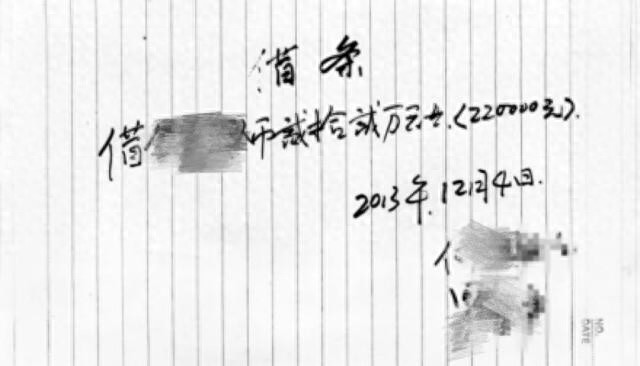 借条
借 币贰拾贰万元 (220000元).
2013年.12月4日.
NO.
DATE